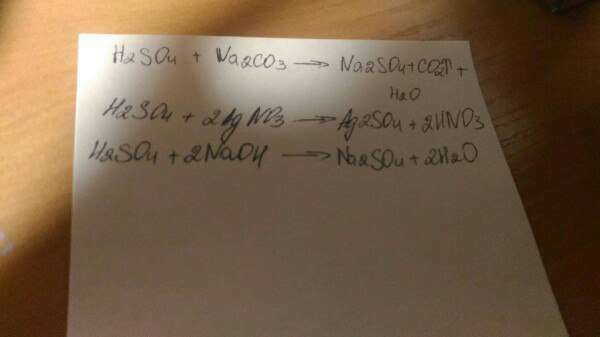 H2SO4 + Na2CO3 → Na2SO4 + CO2↑ +
H2O
H2SO4 + 2AgNO3 → Ag2SO4 + 2HNO3
H2SO4 + 2NaOH → Na2SO4 + 2H2O